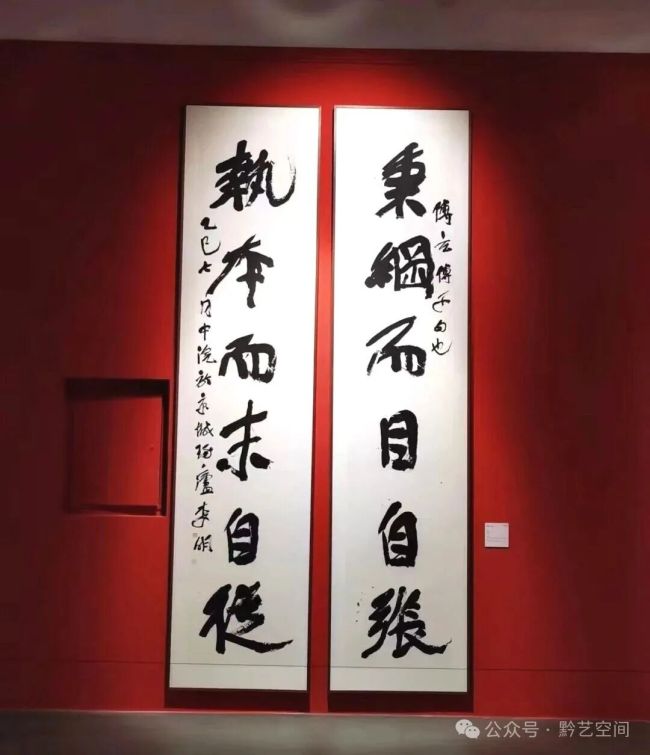 秉綱而目自張
傅玄傅子句也
執本而末自從
乙巳七月中浣於京城廬李明
公众号·黔艺空间